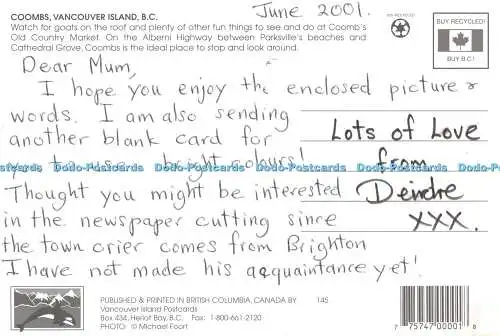 COOMBS, VANCOUVER ISLAND, B.C.
Watch for goats on the roof and plenty of other fun things to see and do at Coomb's
Old Country Market. On the Alberni Highway between Parksville's beaches and
Cathedral Grove, Coombs is the ideal place to stop and look around.
June 2001.
BUY RECYCLED!
BUY B.C.!
Dear Mum,
I hope you enjoy the enclosed picture &
words. I am also sending
another blank card for
you to use - bright colours!
Thought you might be interested
in the newspaper cutting since
the town crier comes from Brighton
I have not made his acquaintance yet!
Lots of Love
from
Deirdre
XXX.
Dodo-Postcards Dodo-Postcards Dodo-Postcards Dodo-Postcards Dodo-Postcards
PUBLISHED & PRINTED IN BRITISH COLUMBIA, CANADA BY
Vancouver Island Postcards
Box 434, Heriot Bay, B.C. Fax: 1-800-661-2120
PHOTO: © Michael Foort
145
7 75747 00001 8